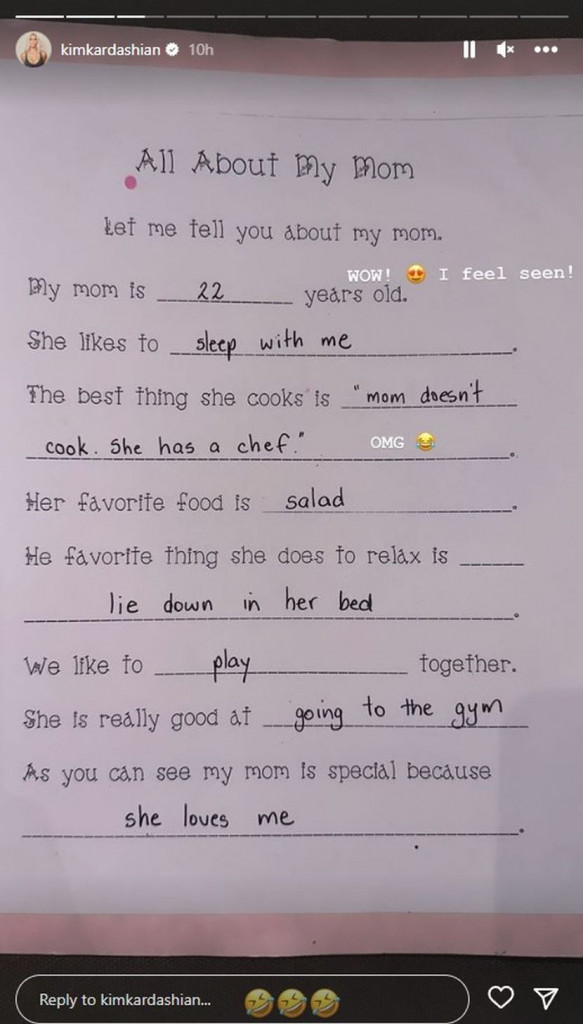 kimkardashian 10h
All About My Mom
Let me tell you about my mom.
WOW! 😍 I feel seen!
My mom is 22 years old.
She likes to sleep with me.
The best thing she cooks is "mom doesn't
cook. She has a chef.".
OMG 😂
Her favorite food is salad.
He favorite thing she does to relax is
lie down in her bed.
We like to play together.
She is really good at going to the gym
As you can see my mom is special because
she loves me.
Reply to kimkardashian... 🤣🤣🤣